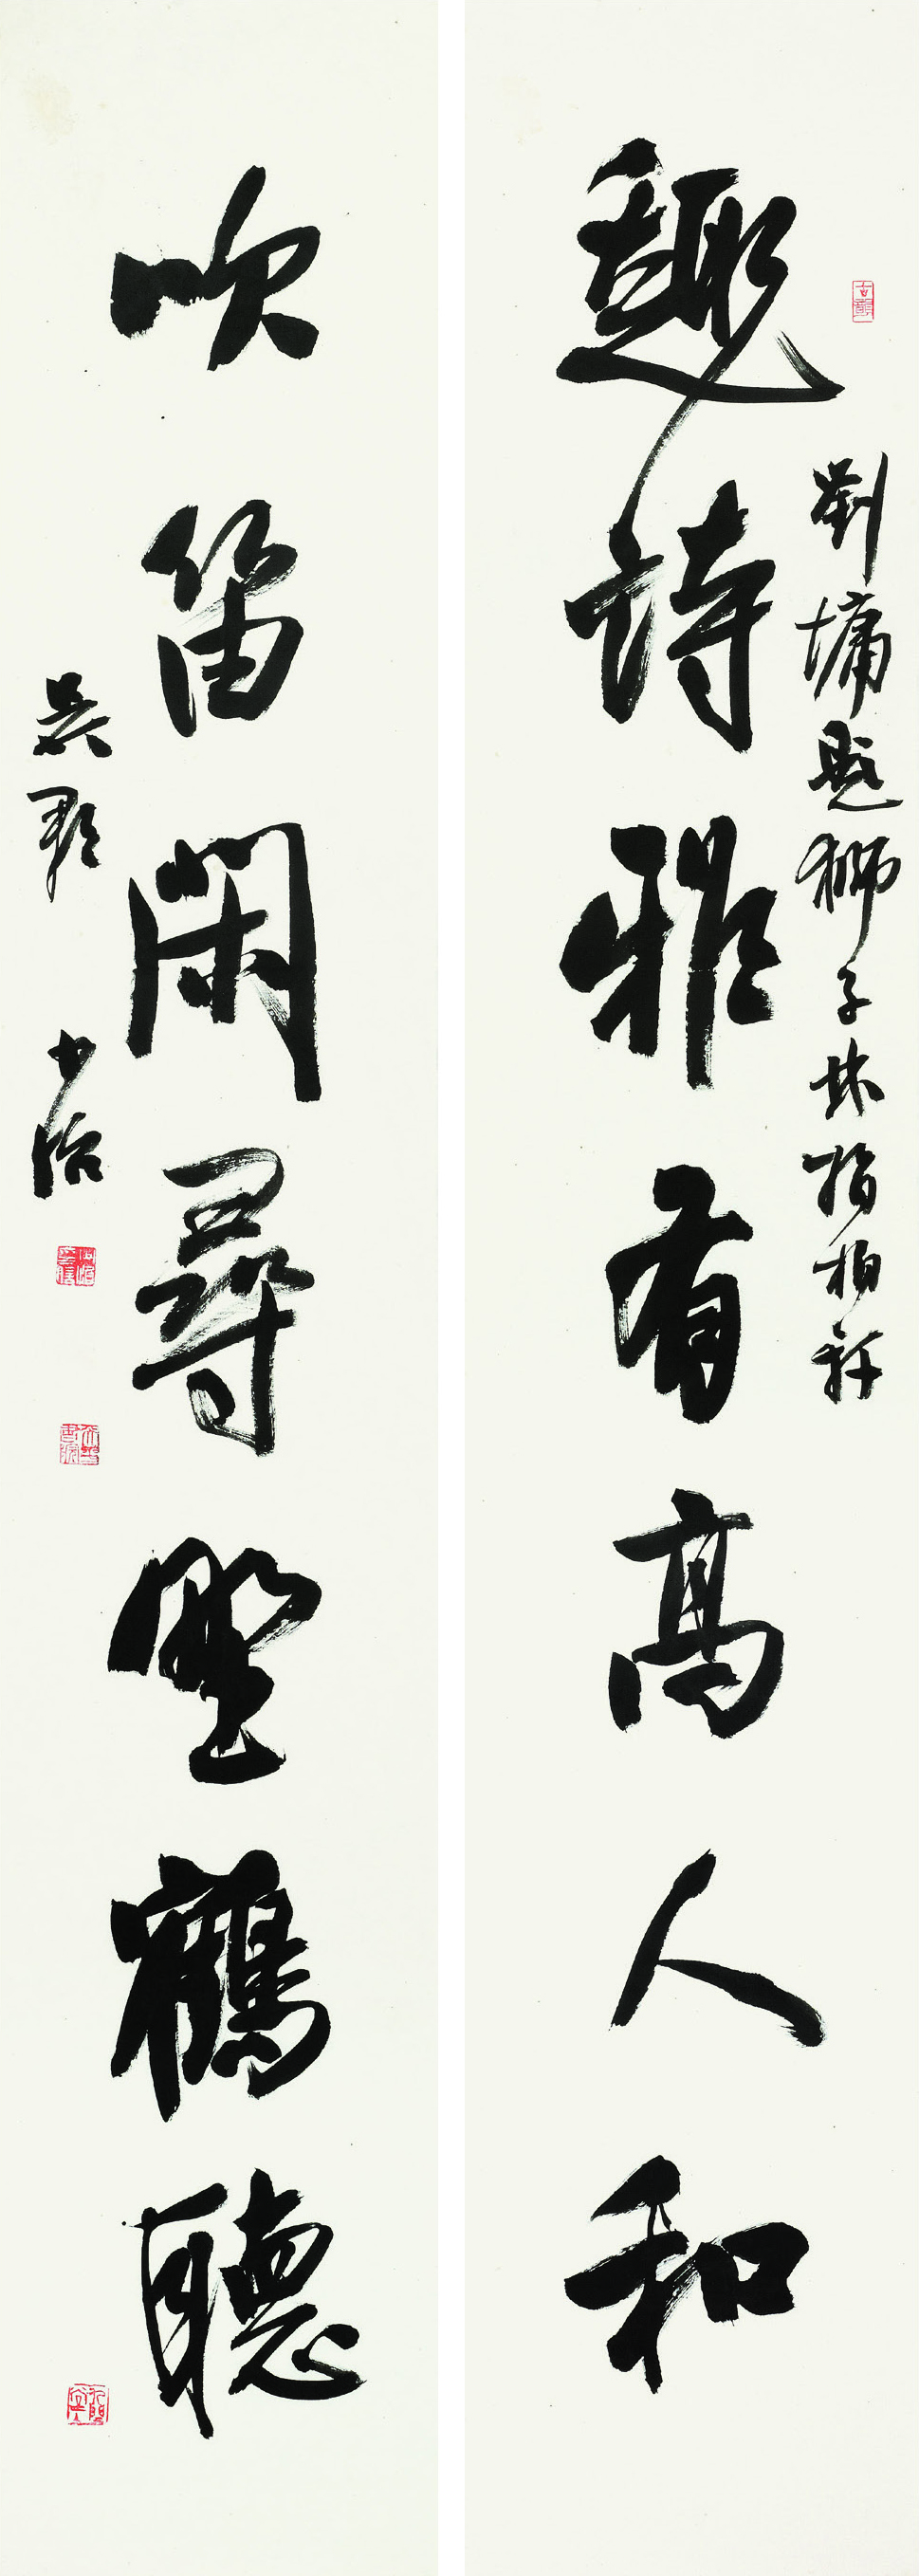 劉墉題獅子林指柏軒
趣詩雅有高人和
吹笛閑尋野鶴聽
吳郡